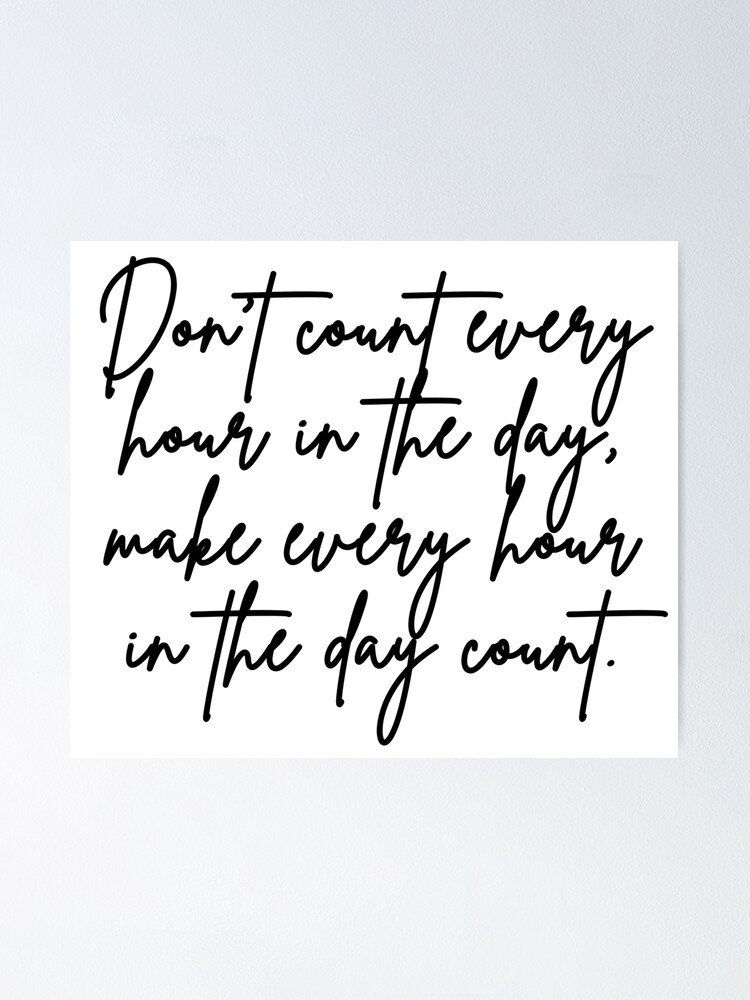 Don't count every
hour in the day,
make every hour
in the day count.